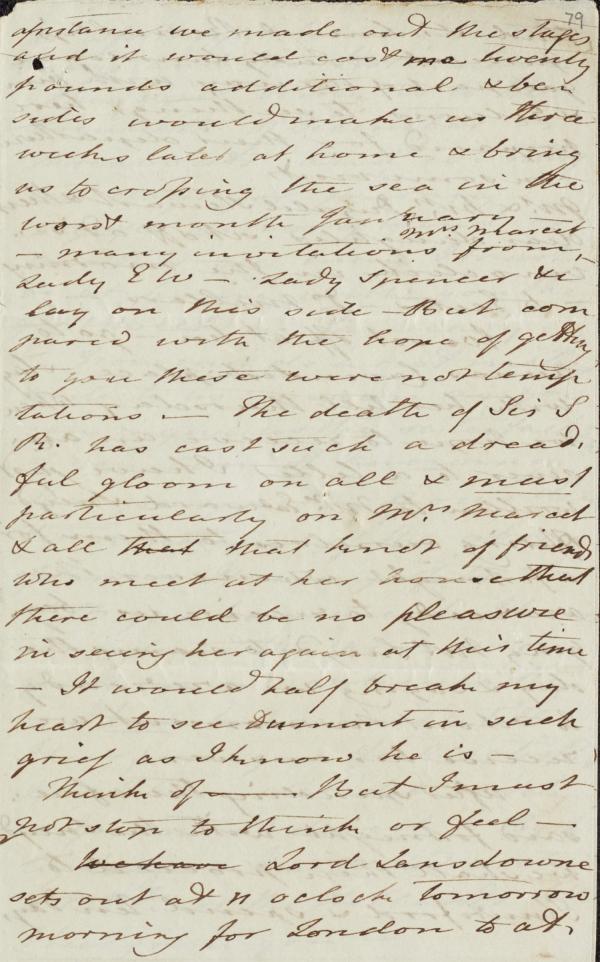 79
assistance we made out the stages
and it would cost me twenty
pounds additional & be=
sides would make us three
weeks later at home & bring
us to crossing the sea in the
worst month January
— many invitations from Mrs. Marcet
Lady E W — Lady Spencer &c
lay on this side — But com
pared with the hope of getting
to you these were not temp
tations — The death of Sir S
R. has cast such a dread.
ful gloom on all & must
particularly on Mrs. Marcet
& all that that knot of friends
who meet at her house that
there could be no pleasure
in seeing her again at this time
— It would half break my
heart to see Dumont in such
grief as I know he is —
Think of —— But I must
not stop to think or feel —
We have Lord Lansdowne
sets out at 11 oclock tomorrow
morning for London to at.